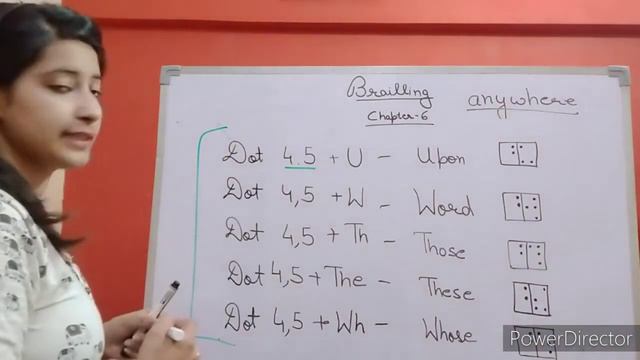 Brailling anywhere
Chapter-6
Dot 4.5 + U - Upon
Dot 4,5 + W - Word
Dot 4,5 + Th - Those
Dot 4,5 + The - These
Dot 4,5 + Wh - Whose
PowerDirector